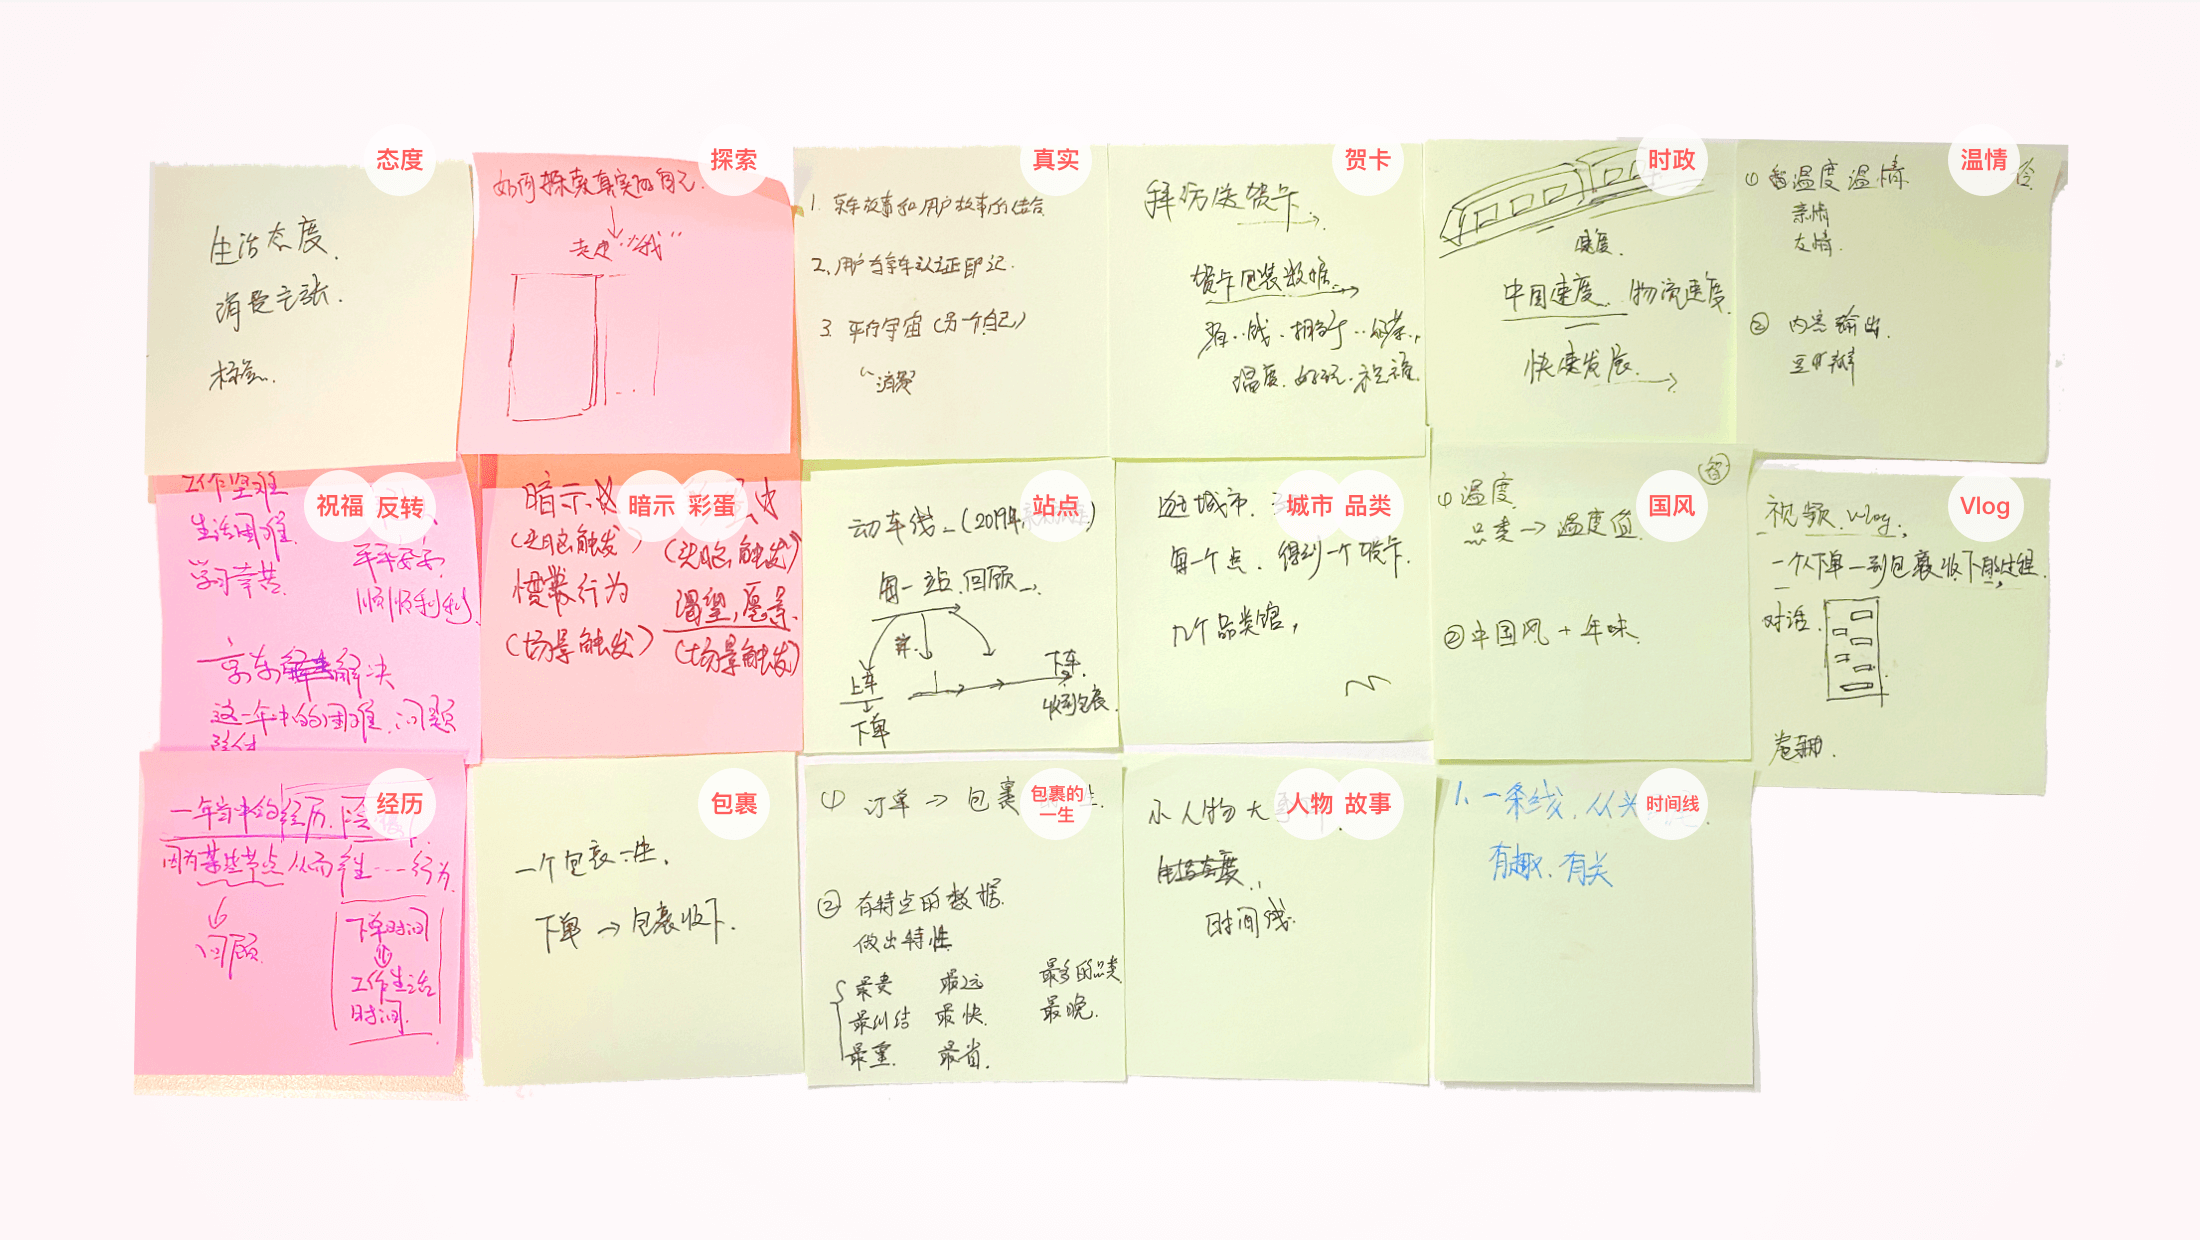 态度
生活态度.
消费主张.
标签.
探索
如何探索真实的自己.
走近"我"
真实
1. 京东故事和用户故事的结合
2. 用户与京东认证印记.
3. 平行宇宙(另一个自己)
"消费
贺卡
拜访送贺卡.
贺卡包装数据.
温度. 好玩. 祝福.
时政
速度.
中国速度. 物流速度.
快速发展.
温情
① 温度 温情
亲情
友情.
② 内容输出.
豆瓣
祝福 反转
工作坚难
生活困难.
学习辛苦.
平平安安.
顺顺利利.
京东解决
这一年中的困难.问题
暗示 彩蛋
暗示.
(头脑触发)
惯常行为
(场景触发)
(头脑触发)
渴望,愿景.
(场景触发)
站点
动车线_(2019年.
每一站.回顾
上车
下单
下车.
收到包裹.
城市 品类
逛城市.
每一个点. 得到一个贺卡.
九个品类馆,
国风
① 温度.
品类→温度值.
② 中国风 + 年味.
Vlog
视频. Vlog,
一个下单一到包裹收下的过程.
对话.
卷轴.
经历
一年当中的经历.
因为某些节点 从而产生…行为.
回顾.
下单时间
工作生活
时间.
包裹
一个包裹一生.
下单 → 包裹收下.
包裹的
一生
① 订单 → 包裹
② 有特点的数据.
做出特性
最贵 最远 最多的品类
最纠结 最快. 最晚.
最重. 最省.
人物 故事
小人物大
生活态度.
时间线.
时间线
1. 一条线, 从头
有趣. 有关